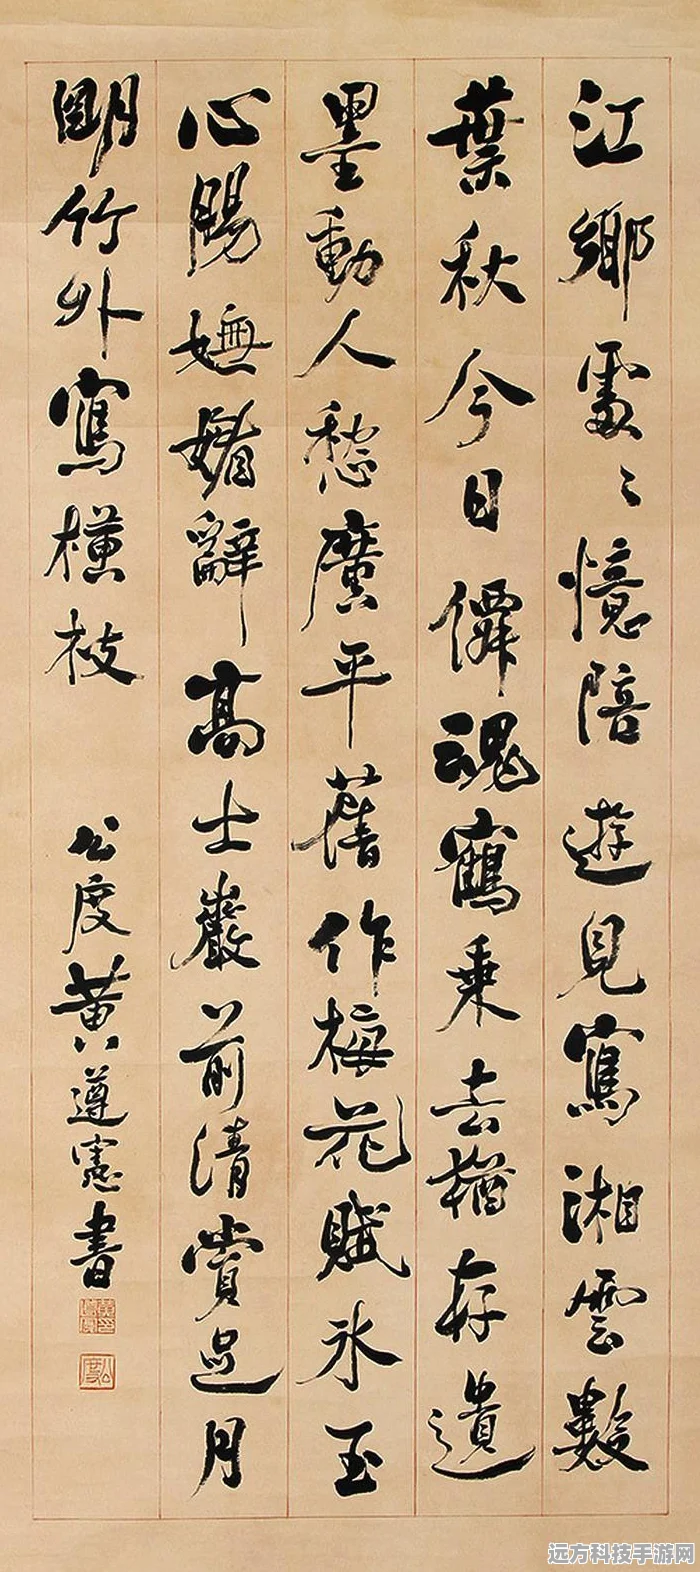 江鄉處々憶陪遊見寫湘雲數
葉秋今日僊魂鶴乘去猶存遺
墨動人愁廣平舊作梅花賦氷玉
心腸嫵媚辭高士巖前清賞足月
明竹外寫橫枝
公度黃遵憲書
公度
远方科技手游网